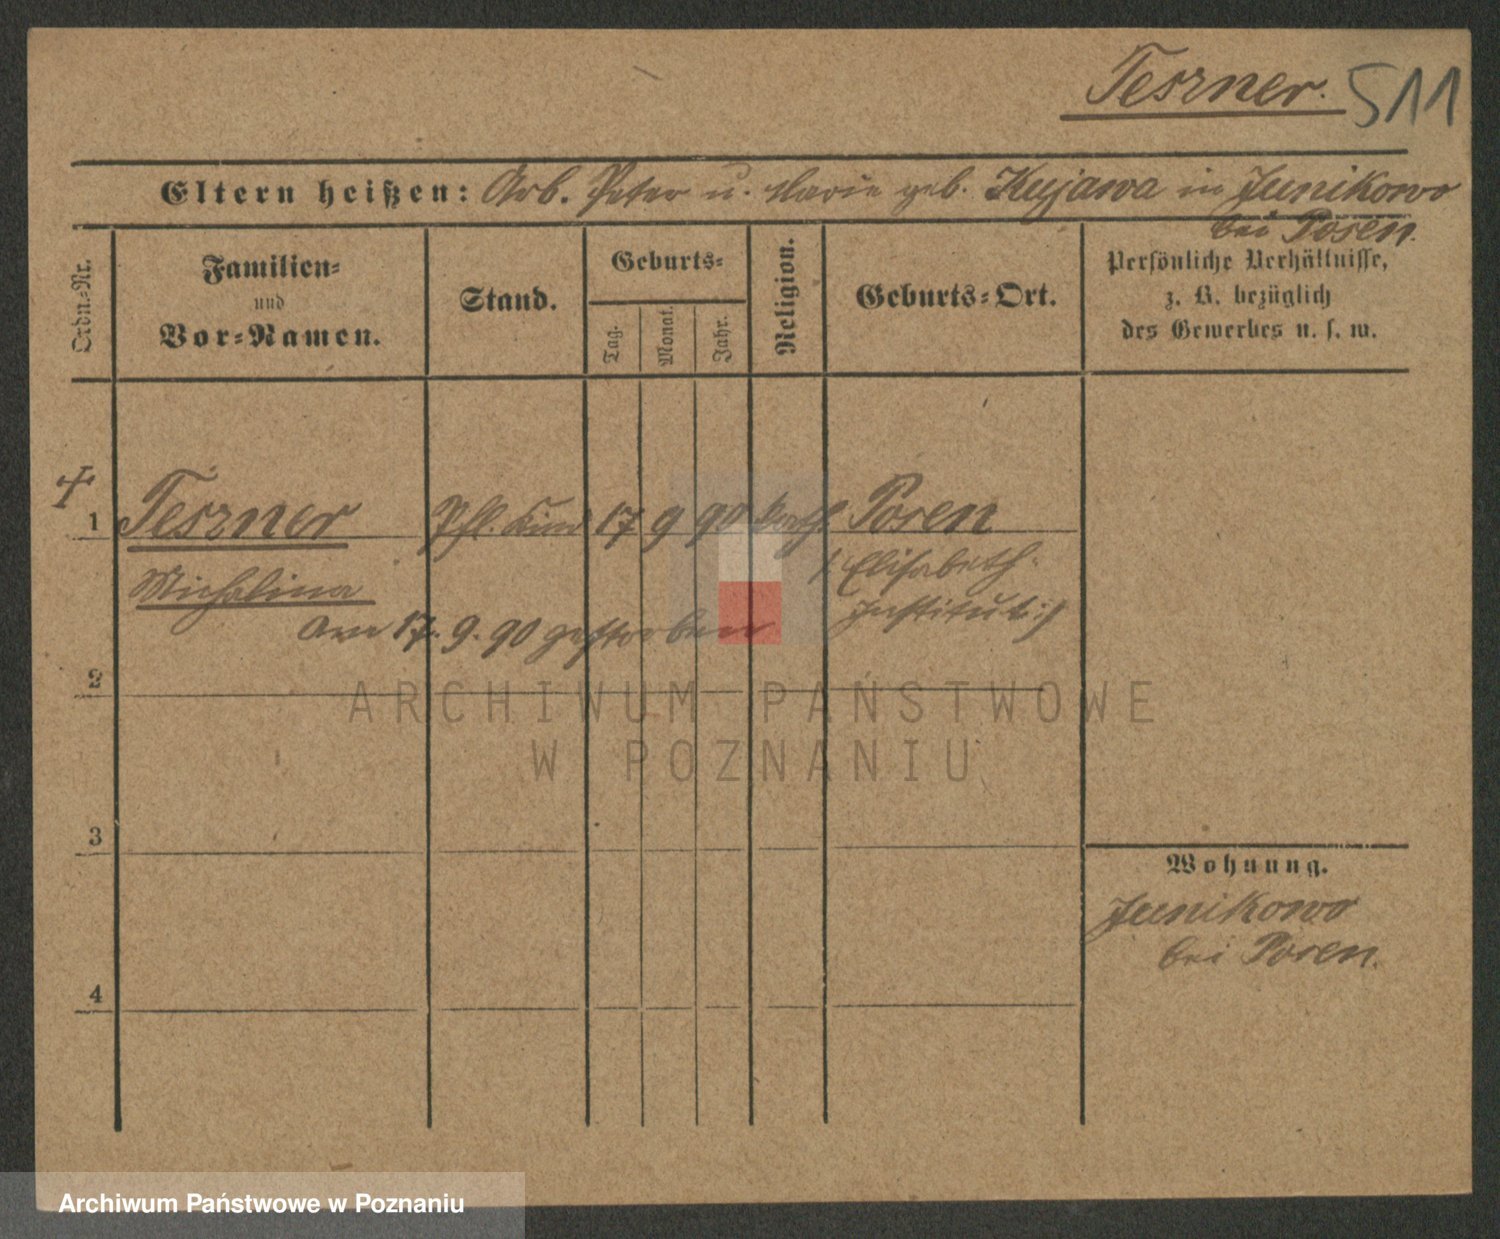 Teszner. 511
Eltern heißen: Arb. Peter u. Marie geb. Kujawa in Junikowo
bei Posen.
Ordn.-Nr.
Familien-
und
Vor-Namen.
Stand.
Geburts-
Tag.
Monat.
Jahr.
Religion.
Geburts-Ort.
Persönliche Verhältnisse,
z. B. bezüglich
des Gewerbes u. s. w.
1 Teszner Pfl. Kind 17 9 90 kath Posen
Michalina
/ Elisabeth-
Institut :/
Am 17. 9. 90 gestorben
2
3
4
Wohnung.
Junikowo
bei Posen.
ARCHIWUM PAŃSTWOWE
W POZNANIU
Archiwum Państwowe w Poznaniu